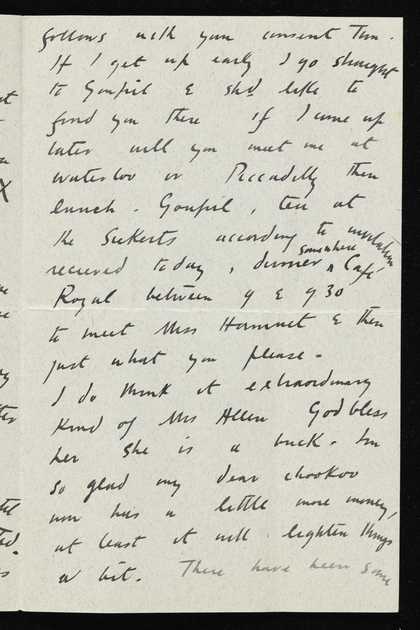 follows with your consent Tom.
If I get up early I go straight
to Goupil & shd like to
find you there if I come up
later will you meet me at
Waterloo or Piccadilly then
lunch. Goupil, tea at
the Sickerts according to invitation
recieved today, dinner somewhere, Cafe
Royal between 9 & 9 30
to meet Miss Hamnet & then
just what you please -
I do think it extraordinary
kind of Mrs Allen God bless
her she is a buck. Im
so glad my dear chookoo
now has a little more money,
at least it will lighten things
a bit. There have been some